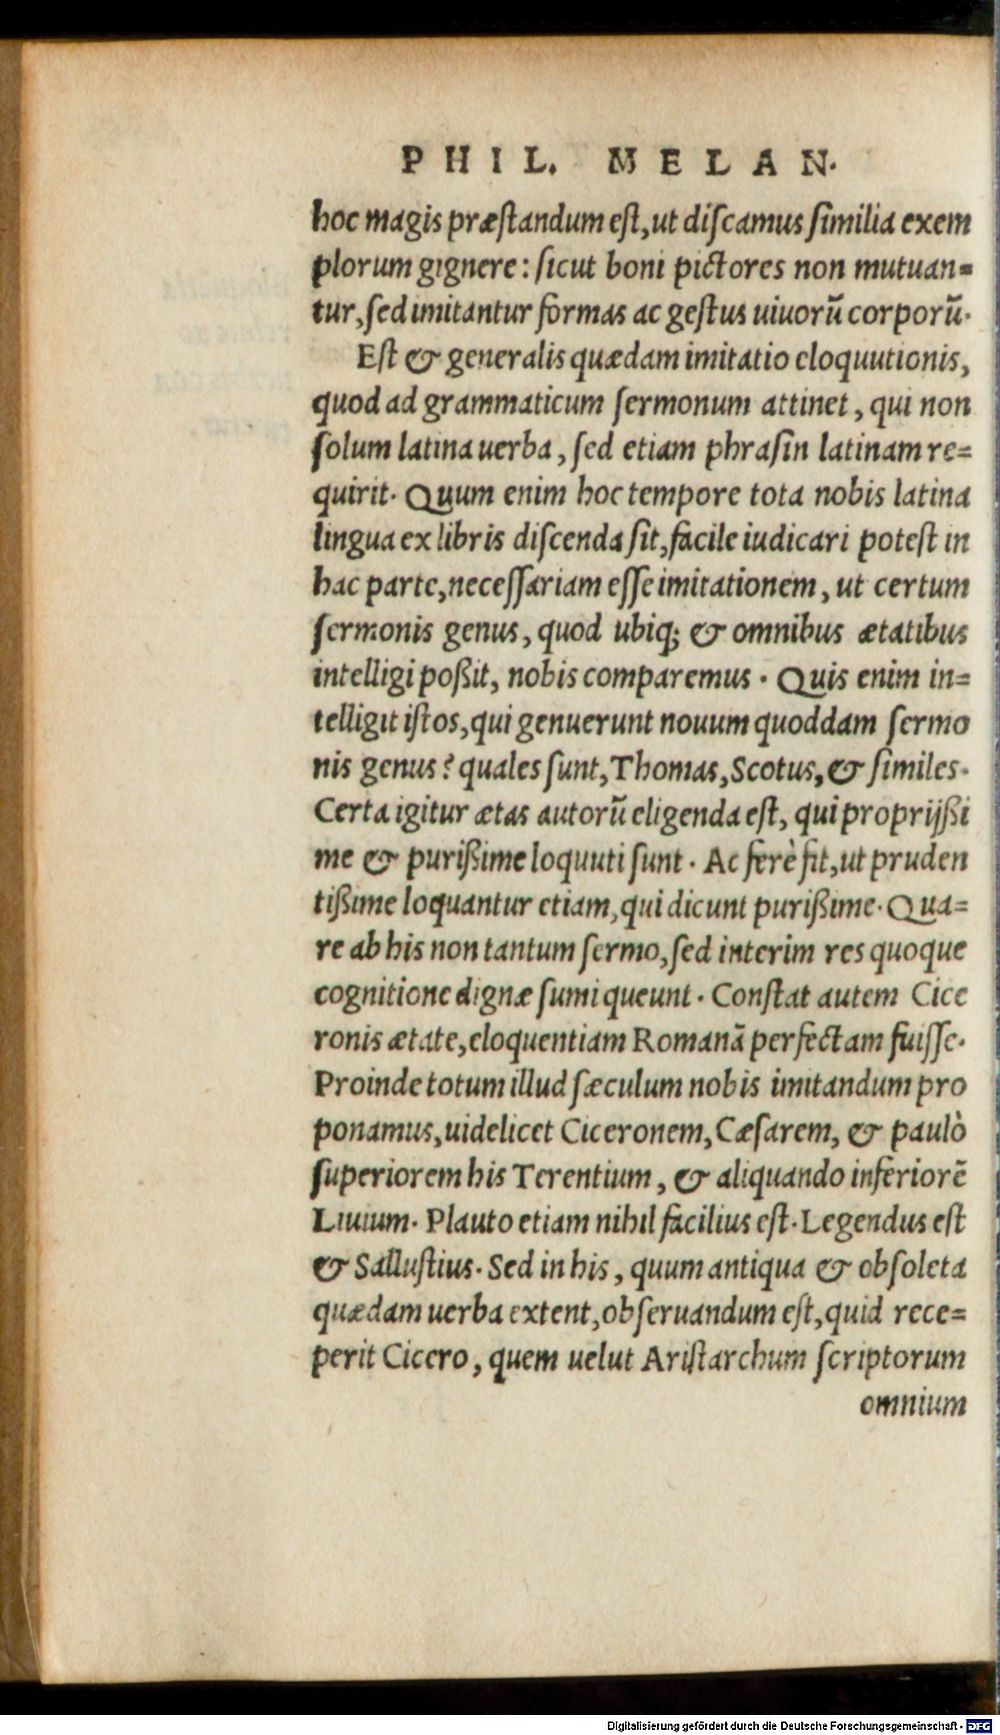 PHIL. MELAN.
hoc magis præſtandum eſt, ut diſcamus ſimilia exem
plorum gignere: ſicut boni pictores non mutuan=
tur, ſed imitantur formas ac geſtus uiuorū corporū.
Eſt & generalis quædam imitatio eloquutionis,
quod ad grammaticum ſermonum attinet, qui non
ſolum latina uerba, ſed etiam phraſin latinam re=
quirit. Quum enim hoc tempore tota nobis latina
lingua ex libris diſcenda ſit, facile iudicari poteſt in
hac parte, neceſſariam eſſe imitationem, ut certum
ſermonis genus, quod ubiq; & omnibus ætatibus
intelligi poßit, nobis comparemus. Quis enim in=
telligit iſtos, qui genuerunt nouum quoddam ſermo
nis genus? quales ſunt, Thomas, Scotus, & ſimiles.
Certa igitur ætas autorū eligenda eſt, qui proprijßi
me & purißime loquuti ſunt. Ac ferè fit, ut pruden
tißime loquantur etiam, qui dicunt purißime. Qua=
re ab his non tantum ſermo, ſed interim res quoque
cognitione dignæ ſumi queunt. Conſtat autem Cice
ronis ætate, eloquentiam Romanā perfectam fuiſſe.
Proinde totum illud ſæculum nobis imitandum pro
ponamus, uidelicet Ciceronem, Cæſarem, & paulò
ſuperiorem his Terentium, & aliquando inferiorē
Liuium. Plauto etiam nihil facilius eſt. Legendus eſt
& Salluſtius. Sed in his, quum antiqua & obſoleta
quædam uerba extent, obſeruandum eſt, quid rece=
perit Cicero, quem uelut Ariſtarchum ſcriptorum
omnium
Digitalisierung gefördert durch die Deutsche Forschungsgemeinschaft - DFG